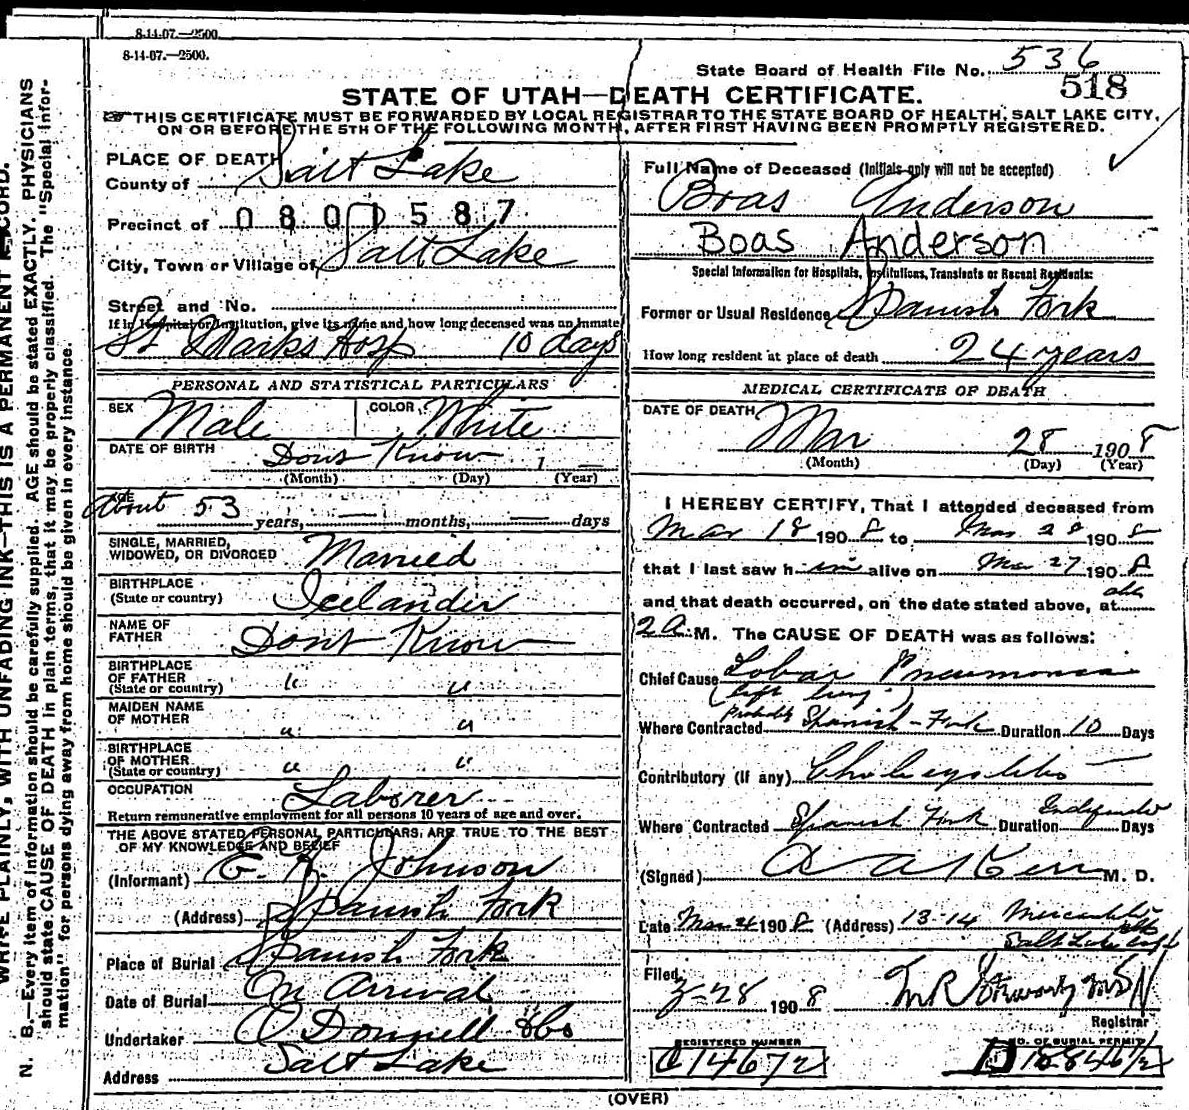 8-14-07.—2500.
8-14-07.—2500.
State Board of Health File No. 536
518
STATE OF UTAH—DEATH CERTIFICATE.
THIS CERTIFICATE MUST BE FORWARDED BY LOCAL REGISTRAR TO THE STATE BOARD OF HEALTH, SALT LAKE CITY,
ON OR BEFORE THE 5TH OF THE FOLLOWING MONTH, AFTER FIRST HAVING BEEN PROMPTLY REGISTERED.
WRITE PLAINLY, WITH UNFADING INK—THIS IS A PERMANENT RECORD.
N. B.—Every item of information should be carefully supplied. AGE should be stated EXACTLY. PHYSICIANS
should state CAUSE OF DEATH in plain terms, that it may be properly classified. The "Special Infor-
mation" for persons dying away from home should be given in every instance.
PLACE OF DEATH
County of Salt Lake
Precinct of 0801587
City, Town or Village of Salt Lake
Street and No.
If in Hospital or Institution, give its name and how long deceased was an inmate
St Marks Hosp 10 days
PERSONAL AND STATISTICAL PARTICULARS
SEX Male COLOR White
DATE OF BIRTH Dont Know 1
(Month) (Day) (Year)
AGE About 53 years, — months, — days
SINGLE, MARRIED,
WIDOWED, OR DIVORCED Married
BIRTHPLACE
(State or country) Icelander
NAME OF
FATHER Dont Know
BIRTHPLACE
OF FATHER
(State or country) " "
MAIDEN NAME
OF MOTHER " "
BIRTHPLACE
OF MOTHER
(State or country) " "
OCCUPATION Laborer
Return remunerative employment for all persons 10 years of age and over.
THE ABOVE STATED PERSONAL PARTICULARS ARE TRUE TO THE BEST
OF MY KNOWLEDGE AND BELIEF
(Informant) Johnson
(Address) Spanish Fork
Place of Burial Spanish Fork
Date of Burial On Arrival
Undertaker O Donnell &Co
Address Salt Lake
Full Name of Deceased (Initials only will not be accepted)
Boas Anderson
Boas Anderson
Special Information for Hospitals, Institutions, Transients or Recent Residents:
Former or Usual Residence Spanish Fork
How long resident at place of death 24 years
MEDICAL CERTIFICATE OF DEATH
DATE OF DEATH
Mar 28 1908
(Month) (Day) (Year)
I HEREBY CERTIFY, That I attended deceased from
Mar 18 1908 to Mar 28 1908
that I last saw him alive on Mar 27 1908
and that death occurred, on the date stated above, at
2 A.M. The CAUSE OF DEATH was as follows:
Chief Cause Lobar Pneumonia
(left lung)
Where Contracted probably Spanish-Fork Duration 10 Days
Contributory (if any)
Where Contracted Spanish Fork Duration Days
(Signed) Kerr M. D.
Date Mar 1908 (Address) 13-14 Mercantile
Salt Lake City
Filed, 3-28 1908
Registrar
REGISTERED NUMBER
C 1467 2
NO. OF BURIAL PERMIT
(OVER)